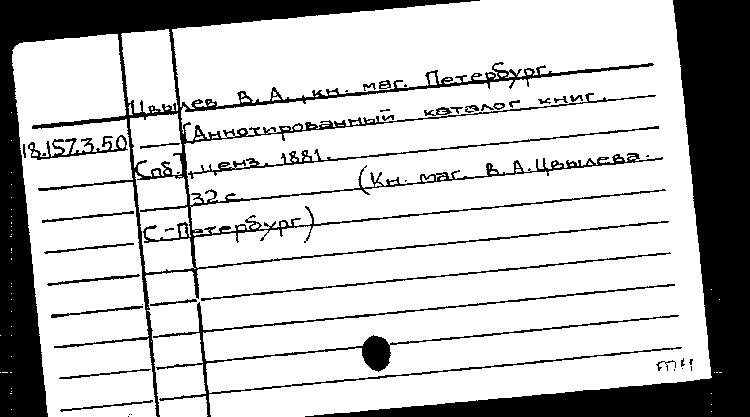 Цвылев В. А., кн. маг. Петербург.
18.157.3.50 [Аннотированный каталог книг.
Спб], ценз. 1881.
32 с. (Кн. маг. В. А. Цвылева.
С.-Петербург)